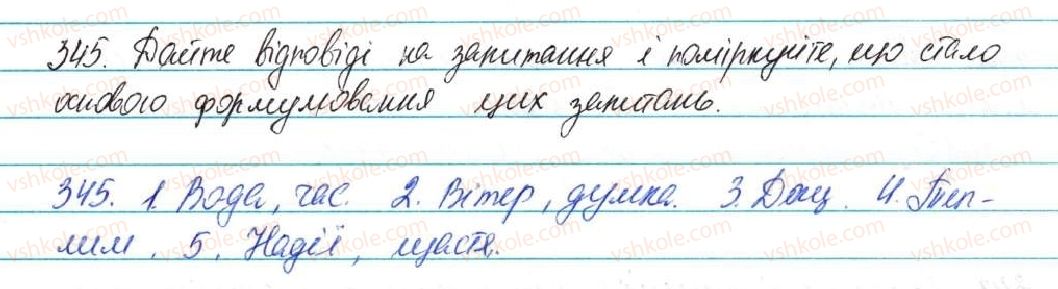 345. Дайте відповіді на запитання і поміркуйте, що стало
основою формулювання цих запитань.
345. 1. Вода, час. 2. Вітер, думка. 3. Дощ. 4. Теп-
лим. 5. Надії, щастя.